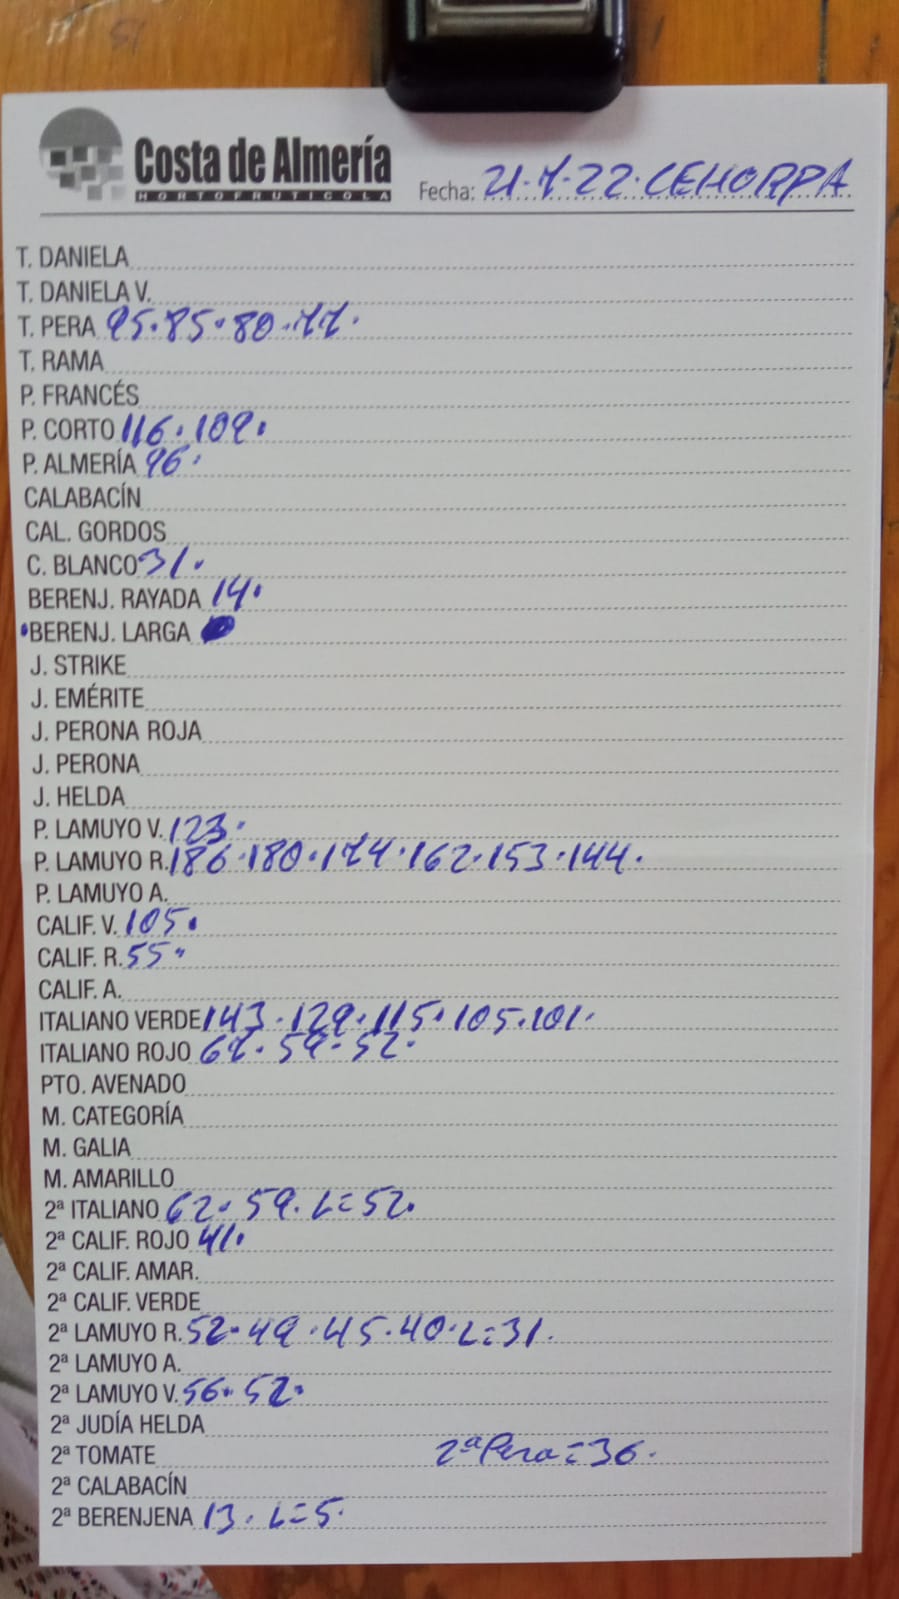 Costa de Almería
HORTOFRUTICOLA
Fecha: 21.7.22. CEHORPA
T. DANIELA
T. DANIELA V.
T. PERA 95.85.80.77.
T. RAMA
P. FRANCÉS
P. CORTO 116.109.
P. ALMERÍA 96.
CALABACÍN
CAL. GORDOS
C. BLANCO 31.
BERENJ. RAYADA 14.
BERENJ. LARGA
J. STRIKE
J. EMÉRITE
J. PERONA ROJA
J. PERONA
J. HELDA
P. LAMUYO V. 123.
P. LAMUYO R. 186.180.174.162.153.144.
P. LAMUYO A.
CALIF. V. 105.
CALIF. R. 55.
CALIF. A.
ITALIANO VERDE 143.129.115.105.101.
ITALIANO ROJO 59.52.
PTO. AVENADO
M. CATEGORÍA
M. GALIA
M. AMARILLO
2ª ITALIANO 62.59. L=52.
2ª CALIF. ROJO 41.
2ª CALIF. AMAR.
2ª CALIF. VERDE
2ª LAMUYO R. 52.49.45.40.L=31.
2ª LAMUYO A.
2ª LAMUYO V. 56.52.
2ª JUDÍA HELDA
2ª TOMATE 2ª Pera=36.
2ª CALABACÍN
2ª BERENJENA 13. L=5.